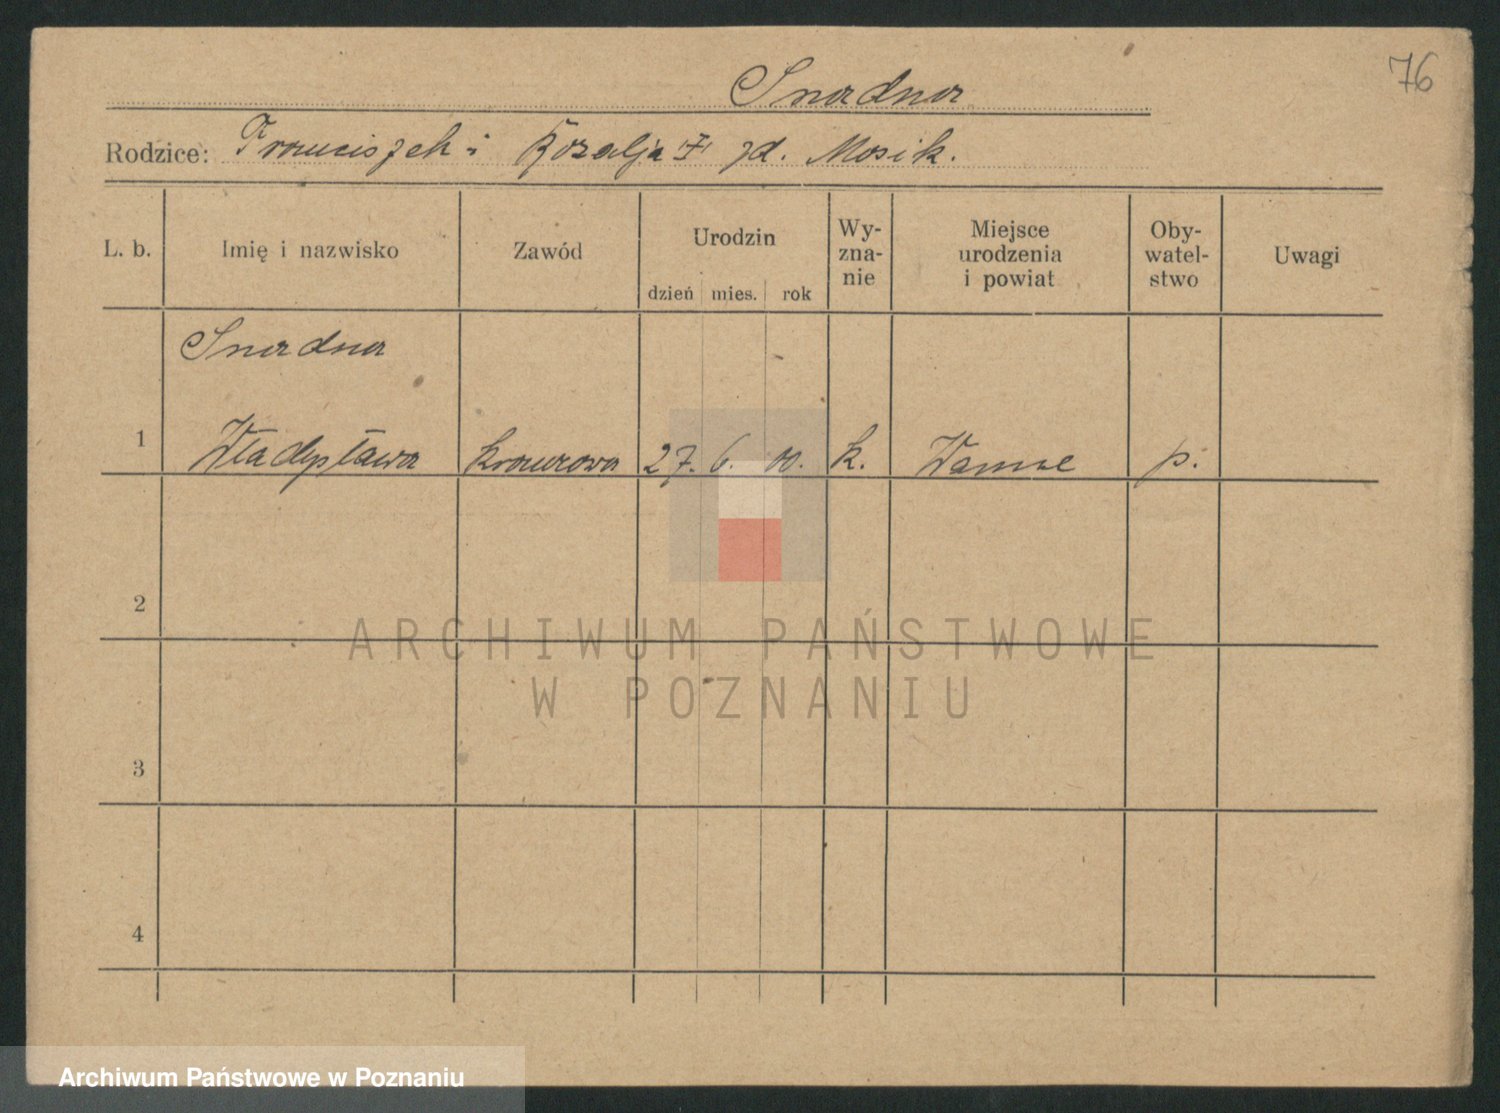 76
Snadna
Rodzice: Franciszek i Rozalja zd. Mosik.
L. b. Imię i nazwisko Zawód Urodzin Wy-zna-nie Miejsce urodzenia i powiat Oby-watel-stwo Uwagi
dzień mies. rok
Snadna
1 Władysława krawcowa 27. 6. 00. k. Wanne p.
2
ARCHIWUM PAŃSTWOWE
W POZNANIU
3
4
Archiwum Państwowe w Poznaniu